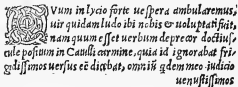 QVum in lycio forte uespera ambularemus,
uir quidam ludo ibi nobis & uoluptati fuit,
nam quum esset uerbum deprecor doctiuſ-
cule positum in Catulli carmine, quia id ignorabat fri-
gidissimos uersus eē dicebat, omniū quidem meo iudicio
uenustissimos